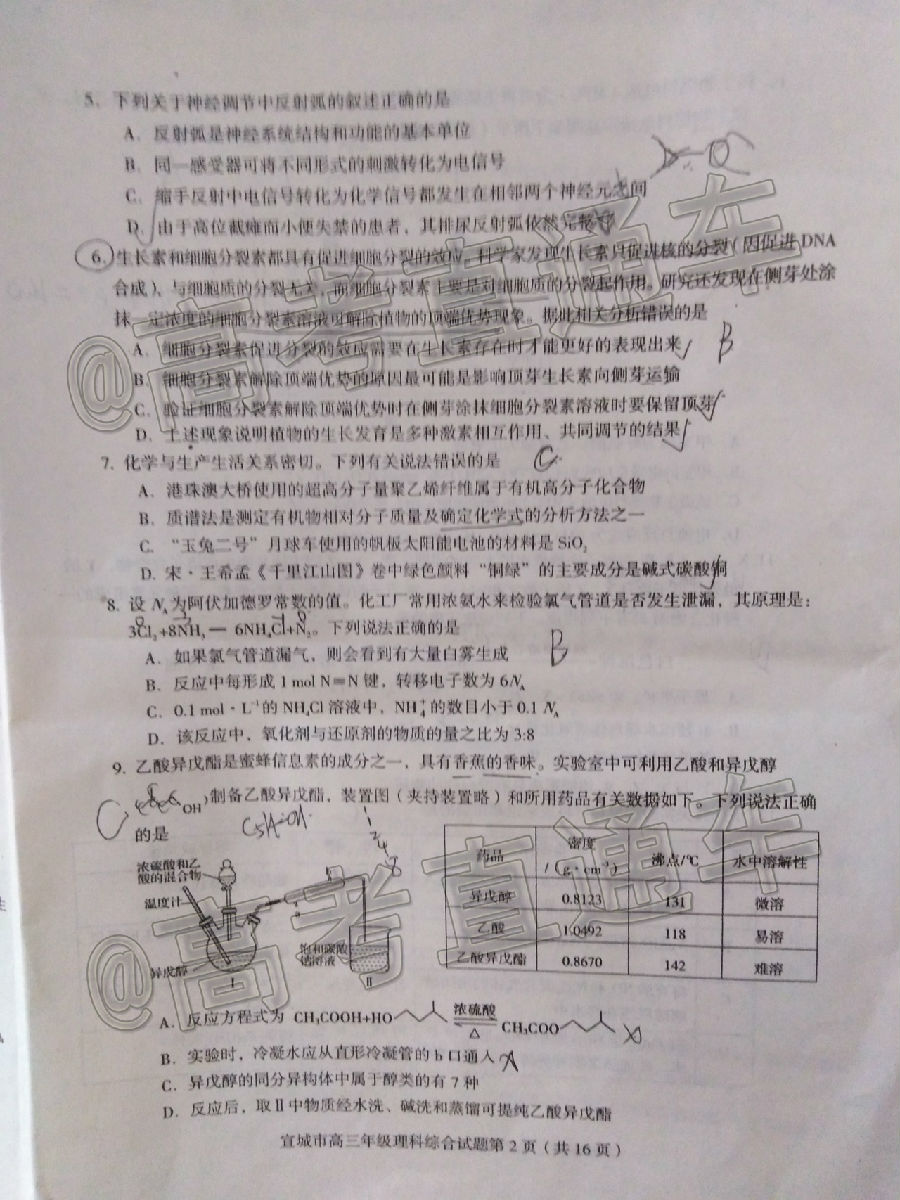 5. 下列关于神经调节中反射弧的叙述正确的是
A. 反射弧是神经系统结构和功能的基本单位
B. 同一感受器可将不同形式的刺激转化为电信号
C. 缩手反射中电信号转化为化学信号都发生在相邻两个神经元之间
D. 由于高位截瘫而小便失禁的患者，其排尿反射弧依然完整
6. 生长素和细胞分裂素都具有促进细胞分裂的效应。科学家发现生长素只促进核的分裂（因促进DNA
合成）、与细胞质的分裂无关，而细胞分裂素主要是对细胞质的分裂起作用。研究还发现在侧芽处涂
抹一定浓度的细胞分裂素溶液可解除植物的顶端优势现象。据此相关分析错误的是
A. 细胞分裂素促进分裂的效应需要在生长素存在时才能更好的表现出来
B
B. 细胞分裂素解除顶端优势的原因最可能是影响顶芽生长素向侧芽运输
C. 验证细胞分裂素解除顶端优势时在侧芽涂抹细胞分裂素溶液时要保留顶芽
D. 上述现象说明植物的生长发育是多种激素相互作用、共同调节的结果
7. 化学与生产生活关系密切。下列有关说法错误的是
C
A. 港珠澳大桥使用的超高分子量聚乙烯纤维属于有机高分子化合物
B. 质谱法是测定有机物相对分子质量及确定化学式的分析方法之一
C. “玉兔二号”月球车使用的帆板太阳能电池的材料是SiO₂
D. 宋·王希孟《千里江山图》卷中绿色颜料“铜绿”的主要成分是碱式碳酸铜
8. 设 Nₐ为阿伏加德罗常数的值。化工厂常用浓氨水来检验氯气管道是否发生泄漏，其原理是：
3Cl₂+8NH₃ — 6NH₄Cl+N₂。下列说法正确的是
B
A. 如果氯气管道漏气，则会看到有大量白雾生成
B. 反应中每形成 1 mol N≡N 键，转移电子数为 6Nₐ
C. 0.1 mol·L⁻¹的 NH₄Cl 溶液中，NH₄⁺的数目小于 0.1 Nₐ
D. 该反应中，氧化剂与还原剂的物质的量之比为 3:8
9. 乙酸异戊酯是蜜蜂信息素的成分之一，具有香蕉的香味。实验室中可利用乙酸和异戊醇
C
OH）制备乙酸异戊酯，装置图（夹持装置略）和所用药品有关数据如下。下列说法正确
的是
浓硫酸和乙
酸的混合物
温度计
异戊醇
饱和碳酸
钠溶液
I
II
药品 密度/（g·cm⁻³） 沸点/℃ 水中溶解性
异戊醇 0.8123 131 微溶
乙酸 1.0492 118 易溶
乙酸异戊酯 0.8670 142 难溶
A. 反应方程式为 CH₃COOH+HO 浓硫酸 △ CH₃COO
B. 实验时，冷凝水应从直形冷凝管的 b 口通入
C. 异戊醇的同分异构体中属于醇类的有 7 种
D. 反应后，取Ⅱ中物质经水洗、碱洗和蒸馏可提纯乙酸异戊酯
宣城市高三年级理科综合试题第 2 页（共 16 页）
@高考直通车
@高考直通车